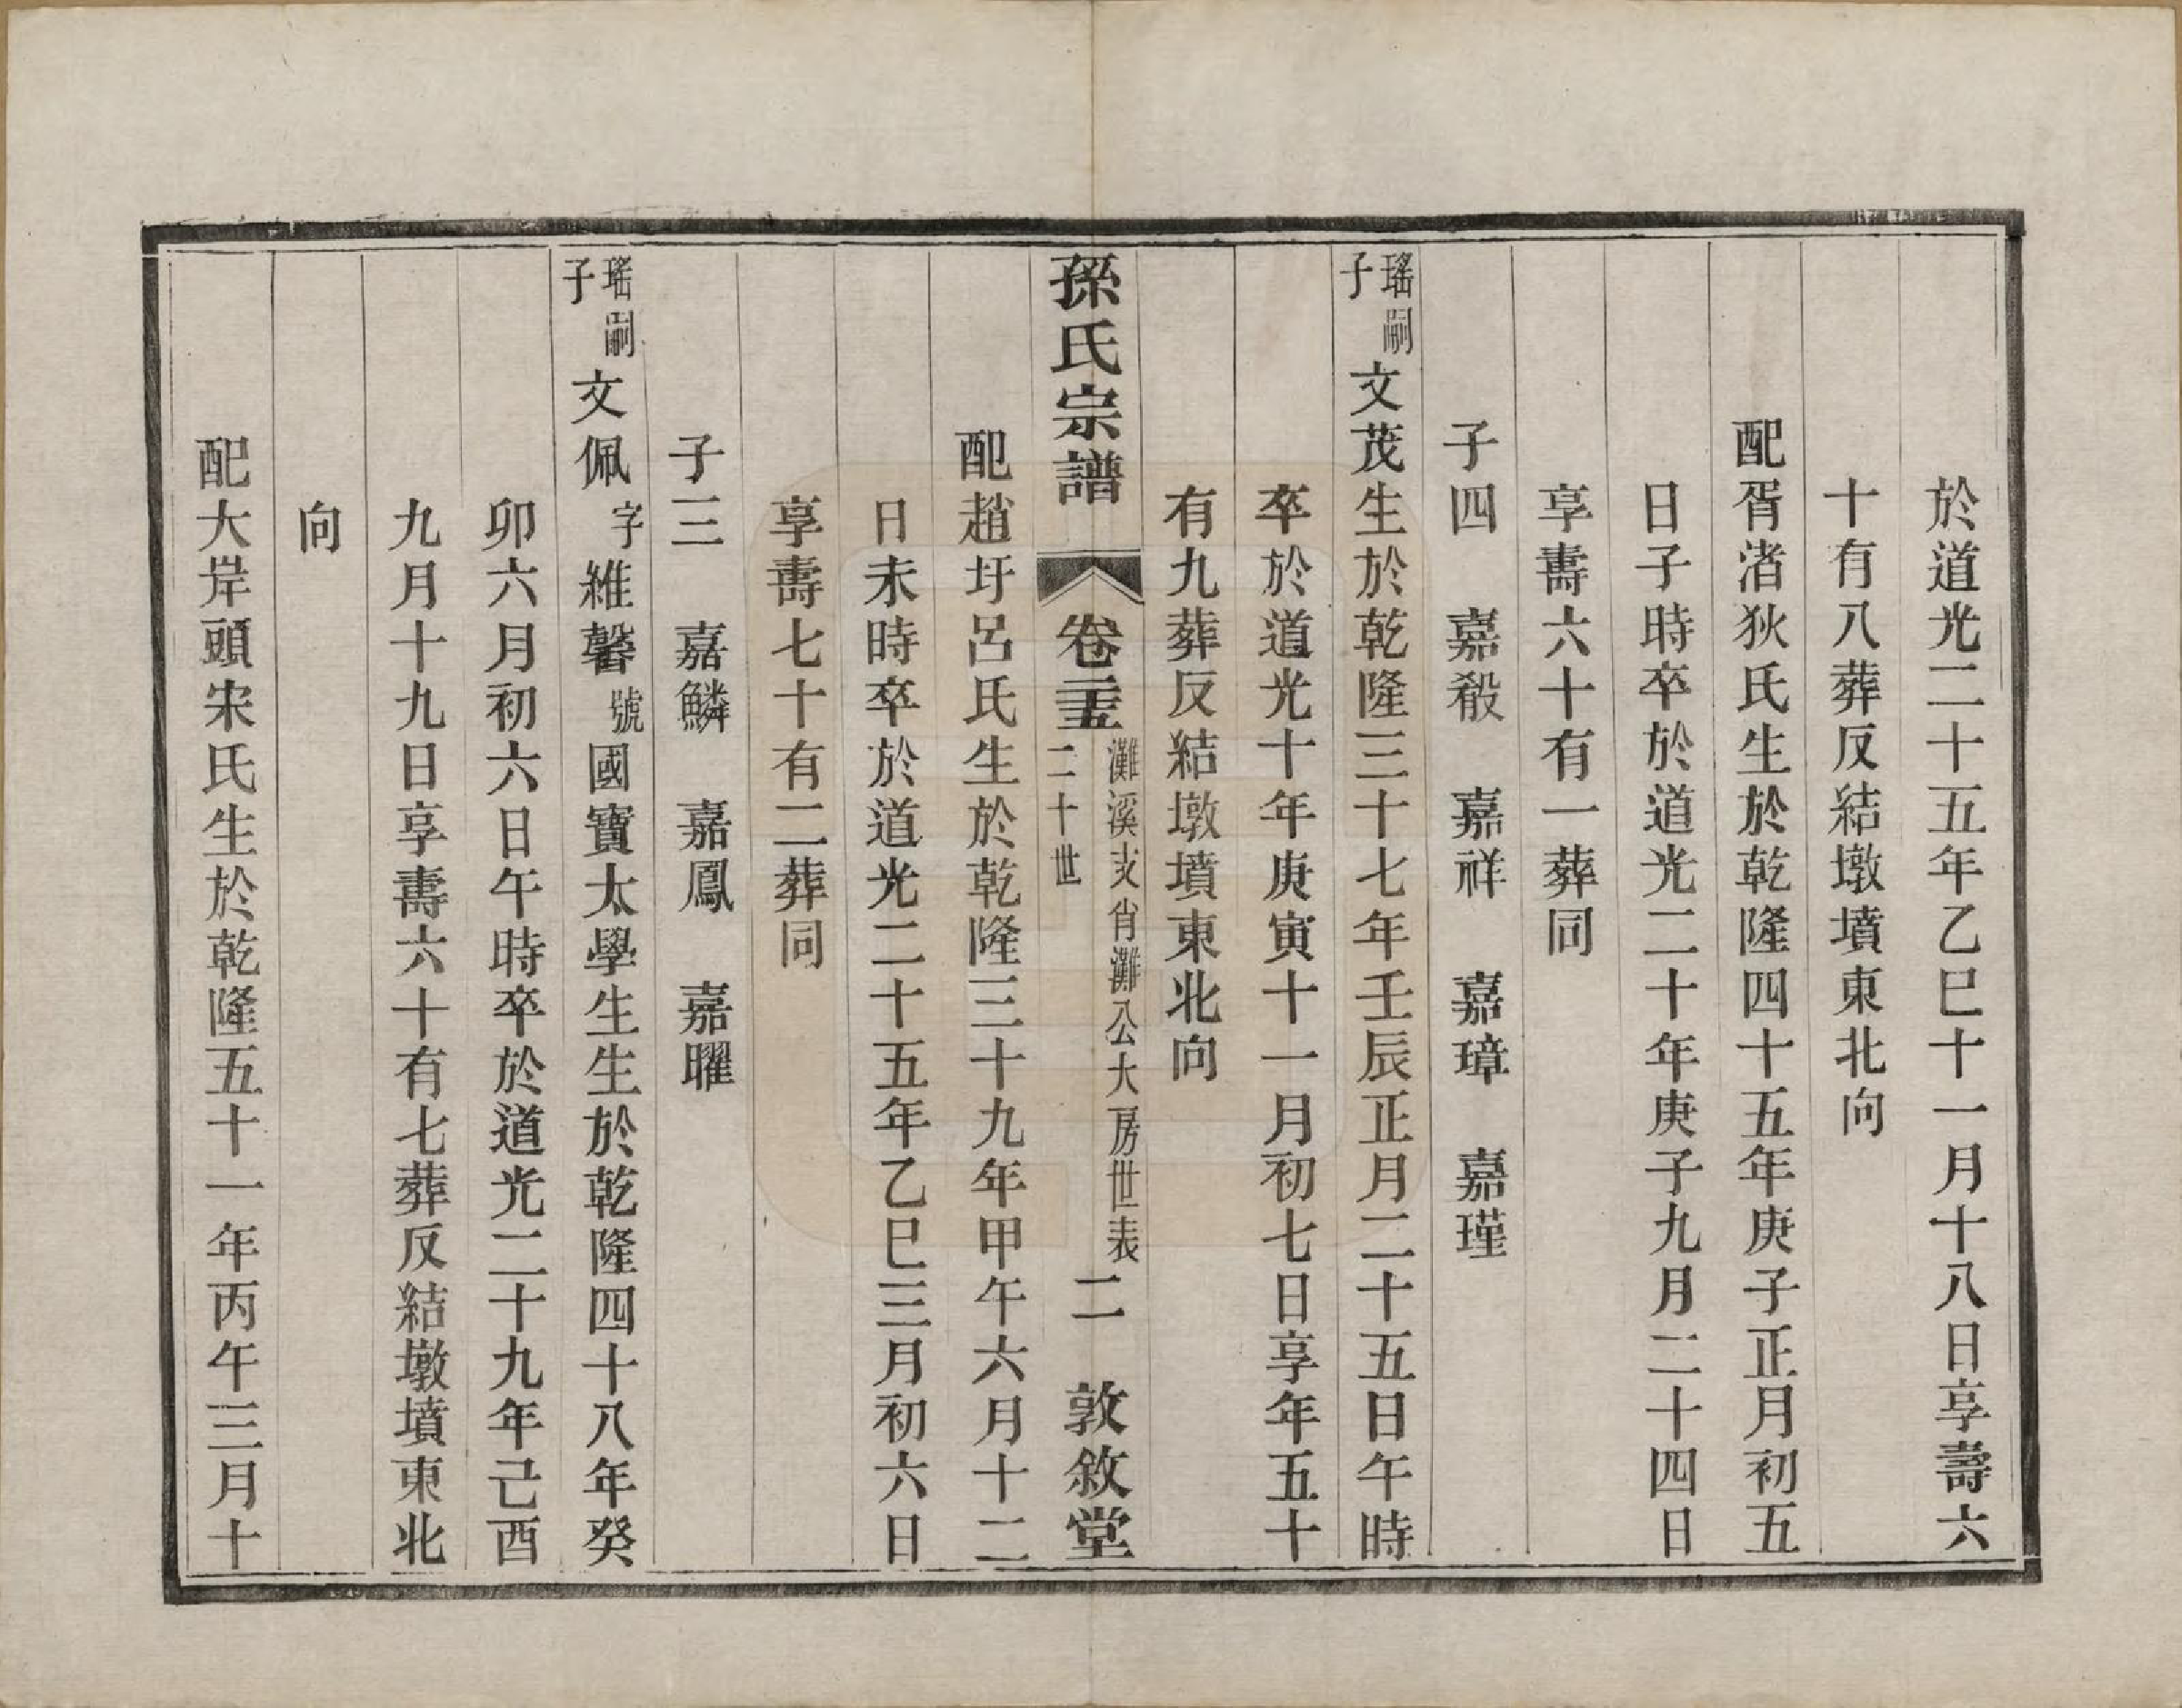 於道光二十五年乙巳十一月十八日享壽六
十有八葬反結墩墳東北向
配胥渚狄氏生於乾隆四十五年庚子正月初五
日子時卒於道光二十年庚子九月二十四日
享壽六十有一葬同
子四　嘉穀　嘉祥　嘉璋　嘉瑾
瑤嗣子文茂生於乾隆三十七年壬辰正月二十五日午時
卒於道光十年庚寅十一月初七日享年五十
有九葬反結墩墳東北向
孫氏宗譜　卷二十五　灘溪支肖灘公大房世表二十世　二　敦敘堂
配趙圩呂氏生於乾隆三十九年甲午六月十二
日未時卒於道光二十五年乙巳三月初六日
享壽七十有二葬同
子三　嘉鱗　嘉鳳　嘉曜
瑤嗣子文佩字維馨號國寶太學生生於乾隆四十八年癸
卯六月初六日午時卒於道光二十九年己酉
九月十九日享壽六十有七葬反結墩墳東北
向
配大岸頭宋氏生於乾隆五十一年丙午三月十